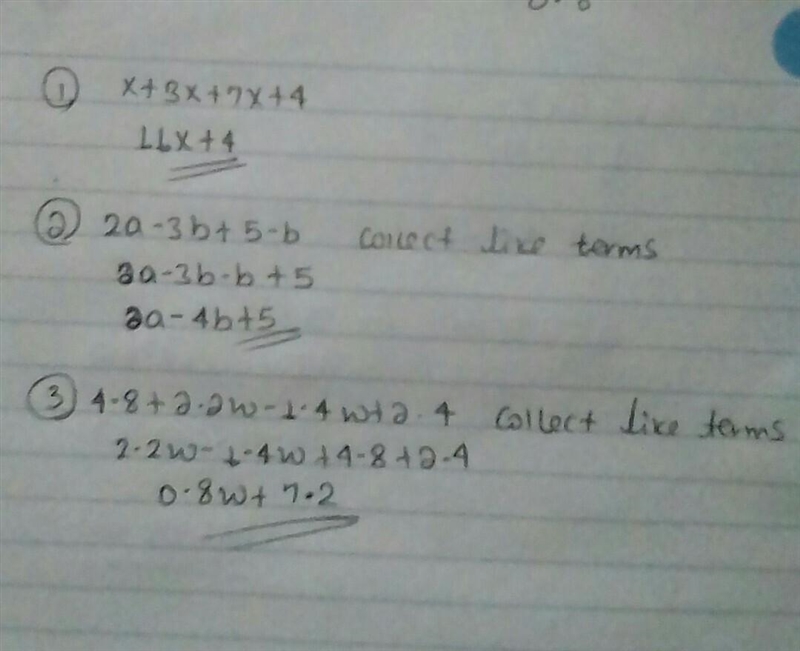 ① x+3x+7x+4
11x+4
② 2a-3b+5-b collect like terms
2a-3b-b+5
2a-4b+5
③ 4.8+2.2w-1.4w+2.4 collect like terms
2.2w-1.4w+4.8+2.4
0.8w+7.2